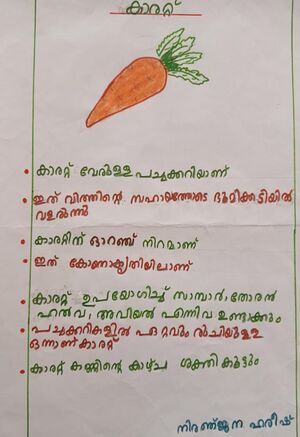 കാരറ്റ്
കാരറ്റ് വേരുള്ള പച്ചക്കറിയാണ്
ഇത് വിത്തിന്റെ സഹായത്തോടെ ഭൂമിക്കടിയിൽ
വളരുന്നു
കാരറ്റിന് ഓറഞ്ച് നിറമാണ്
ഇത് കോണാകൃതിയിലാണ്
കാരറ്റ് ഉപയോഗിച്ച് സാമ്പാർ, തോരൻ
ഹൽവ, അവിയൽ എന്നിവ ഉണ്ടാക്കും
പച്ചക്കറികളിൽ ഏറ്റവും രുചിയുള്ള
ഒന്നാണ് കാരറ്റ്
കാരറ്റ് കണ്ണിന്റെ കാഴ്ച ശക്തി കൂട്ടും
നിരഞ്ജന ഹരീഷ്